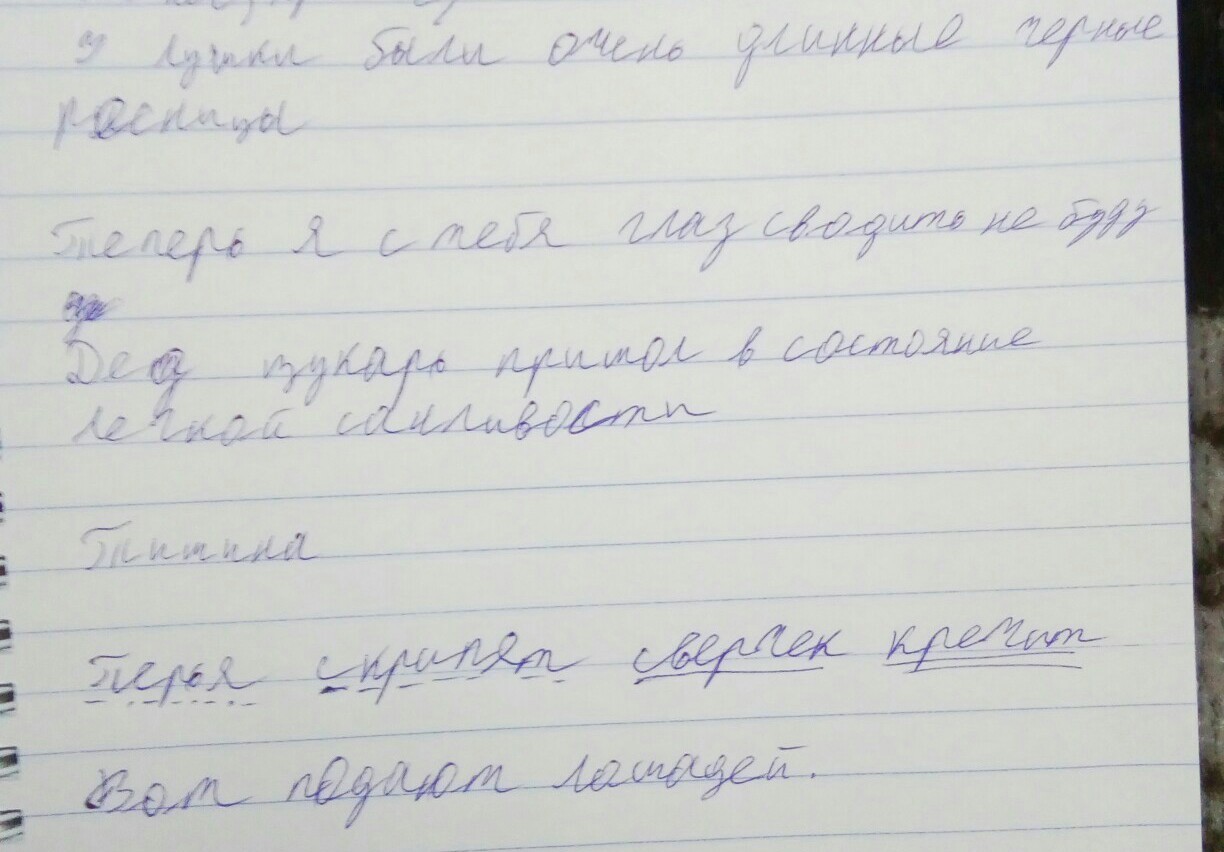 У лушки были очень длинные черные
расницы
Теперь я с тебя глаз сводить не буду
Дед щукарь пришол в состояние
легкой сонливости
Тишина
Перья скрипят сверчек кречит
Вот подают лошадей.